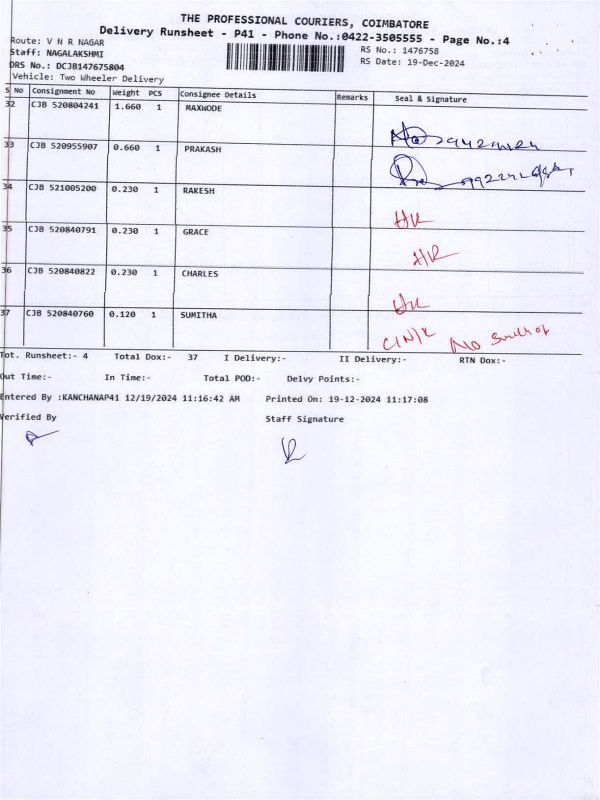 THE PROFESSIONAL COURIERS, COIMBATORE
Delivery Runsheet - P41 - Phone No.:0422-3505555 - Page No.:4
Route: V N R NAGAR RS No.: 1476758
Staff: NAGALAKSHMI RS Date: 19-Dec-2024
DRS No.: DCJB147675804
Vehicle: Two Wheeler Delivery
S No Consignment No Weight PCS Consignee Details Remarks Seal & Signature
32 CJB 520804241 1.660 1 MAXWODE
33 CJB 520955907 0.660 1 PRAKASH
34 CJB 521005200 0.230 1 RAKESH
HR
35 CJB 520840791 0.230 1 GRACE
HR
36 CJB 520840822 0.230 1 CHARLES
HR
37 CJB 520840760 0.120 1 SUMITHA
No
Tot. Runsheet:- 4 Total Dox:- 37 I Delivery:- II Delivery:- RTN Dox:-
Out Time:- In Time:- Total POD:- Delvy Points:-
Entered By :KANCHANAP41 12/19/2024 11:16:42 AM Printed On: 19-12-2024 11:17:08
Verified By Staff Signature